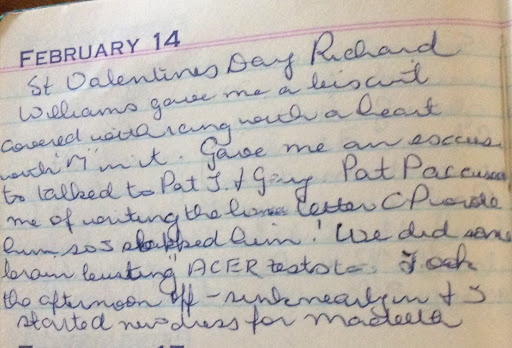 FEBRUARY 14
St Valentines Day Richard
Williams gave me a biscuit
covered with icing with a heart
with "M" in it. Gave me an excuse
to talked to Pat J. & Gary Pat Pat accused
me of writing the letter
him so I slapped him! We did some
brain busting" ACER tests took
the afternoon off - sunk nearly &
started new dress for